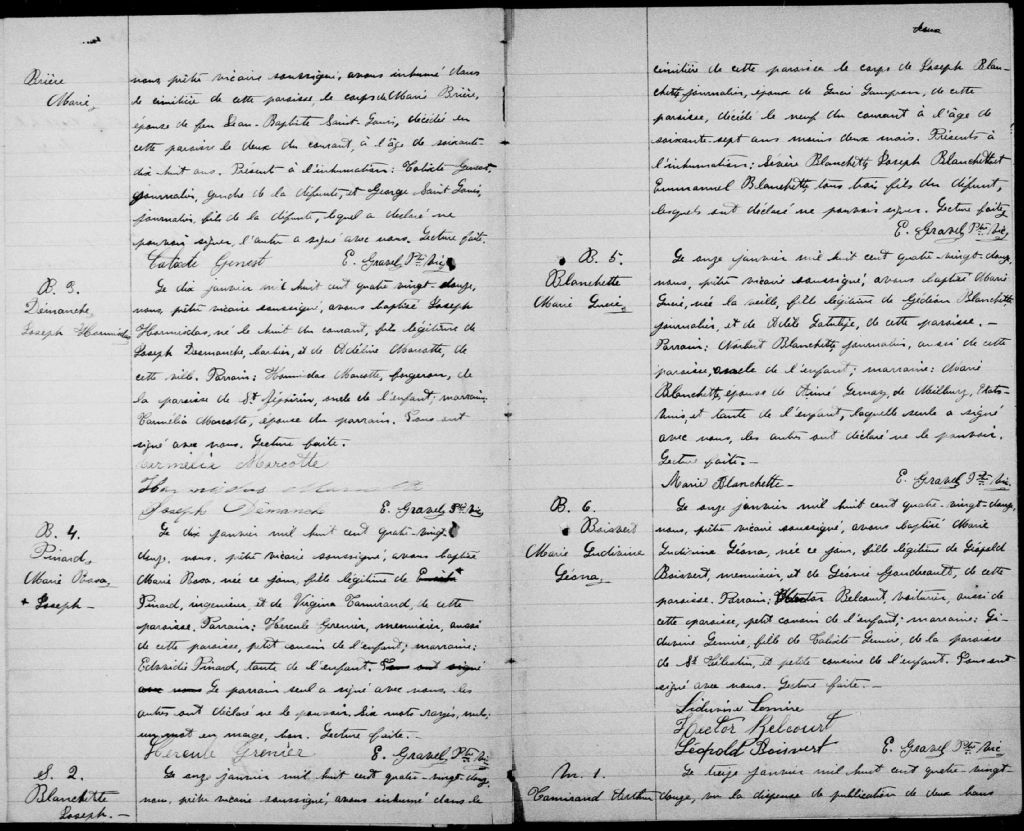 Brière
Marie,
nous prêtre vicaire soussigné, avons inhumé dans
le cimetière de cette paroisse, le corps de Marie Brière,
épouse de feu Jean-Baptiste Saint-Louis, décédé en
cette paroisse le deux du courant, à l'âge de soixante-
dix huit ans. Présent à l'inhumation: Calixte Genest,
journalier, gendre de la défunte, et George Saint Louis,
journalier, fils de la défunte, lequel a déclaré ne
pouvoir signer, l'autre a signé avec nous. Lecture faite.
Calixte Genest E. Gravel Ptre Vic
B. 3.
Démanche,
Joseph Hormidas
Le dix janvier mil huit cent quatre-vingt-douze,
nous, prêtre vicaire soussigné, avons baptisé Joseph
Hormidas, né le huit du courant, fils légitime de
Joseph Desmanche, barbier, et de Adéline Marcotte, de
cette ville. Parrain: Hormidas Marcotte, forgeron, de
la paroisse de St Zéphirin, oncle de l'enfant; marraine:
Carmélia Marcotte, épouse du parrain. Tous ont
signé avec nous. Lecture faite.
Carmélia Marcotte
Hormidas Marcotte
Joseph Démanche E. Gravel Ptre Vic
B. 4.
Pinard,
Marie Rosa,
+ Joseph —
Le dix janvier mil huit cent quatre-vingt
douze, nous, prêtre vicaire soussigné, avons baptisé
Marie Rosa, née ce jour, fille légitime de +
Pinard, ingenieur, et de Virgina Tamirand, de cette
paroisse. Parrain: Hercule Grenier, menuisier, aussi
de cette paroisse, petit cousin de l'enfant; marraine:
Edwidis Pinard, tante de l'enfant. Tous ont signé
avec nous Le parrain seul a signé avec nous, les
autres ont déclaré ne le pouvoir. Six mots rayés, nuls;
un mot en marge, bon. Lecture faite. —
Hercule Grenier E. Gravel Ptre Vic
S. 2.
Blanchette
Joseph. —
Le onze janvier mil huit cent quatre-vingt-douze
nous, prêtre vicaire soussigné, avons inhumé dans le
deux
cimetière de cette paroisse le corps de Joseph Blan-
chette, journalier, époux de Lucie, de cette
paroisse, décédé le neuf du courant à l'âge de
soixante-sept ans moins deux mois. Présents à
l'inhumation: Sévère Blanchette, Joseph Blanchette et
Emmanuel Blanchette, tous trois fils du défunt,
lesquels ont déclaré ne pouvoir signer. Lecture faite,
E. Gravel Ptre Vic,
B. 5.
Blanchette
Marie Lucie,
Le onze janvier mil huit cent quatre-vingt-douze,
nous, prêtre vicaire soussigné, avons baptisé Marie
Lucie, née la veille, fille légitime de Gédéon Blanchette,
journalier, et de Adèle, de cette paroisse. —
Parrain: Norbert Blanchette, journalier, aussi de cette
paroisse, oncle de l'enfant; marraine: Marie
Blanchette, épouse de Aimé, de Milbury, Etats-
Unis, et tante de l'enfant, laquelle seule a signé
avec nous, les autres ont déclaré ne le pouvoir.
Lecture faite. —
Marie Blanchette — E. Gravel Ptre Vic
B. 6.
Boisvert
Marie Ludivine
Léona,
Le onze janvier mil huit cent quatre-vingt-douze,
nous, prêtre vicaire soussigné, avons baptisé Marie
Ludivine Léona, née ce jour, fille légitime de Léopold
Boisvert, menuisier, et de Léonie Gaudreault, de cette
paroisse. Parrain: Hector Belcourt, voiturier, aussi de
cette paroisse, petit cousin de l'enfant; marraine: Li-
divine Lemire, fille de Calixte Lemire, de la paroisse
de St Célestin, et petite cousine de l'enfant. Tous ont
signé avec nous. Lecture faite. —
Lidivine Lemire
Hector Belcourt
Léopold Boisvert E. Gravel Ptre Vic
M. 1.
Tamirand Arthur
Le treize janvier mil huit cent quatre-vingt-
douze, vu la dispense de publication de deux bans